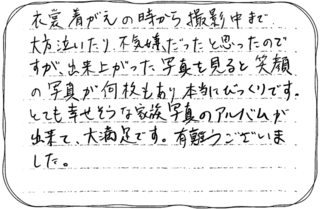 衣裳着がえの時から撮影中まで
大方泣いたり、不気嫌だったと思ったので
すが、出来上がった写真を見ると笑顔
の写真が何枚もあり本当にびっくりです。
とても幸せそうな家族写真のアルバムが
出来て、大満足です。有難うございま
した。